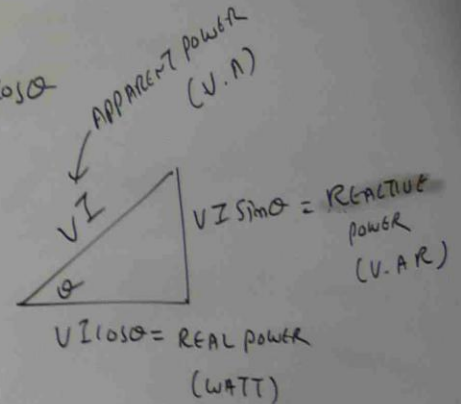 cosθ
APPARENT POWER
(V.A)
VI
VI Sinθ = REACTIVE
POWER
(V.AR)
θ
VI cosθ = REAL POWER
(WATT)